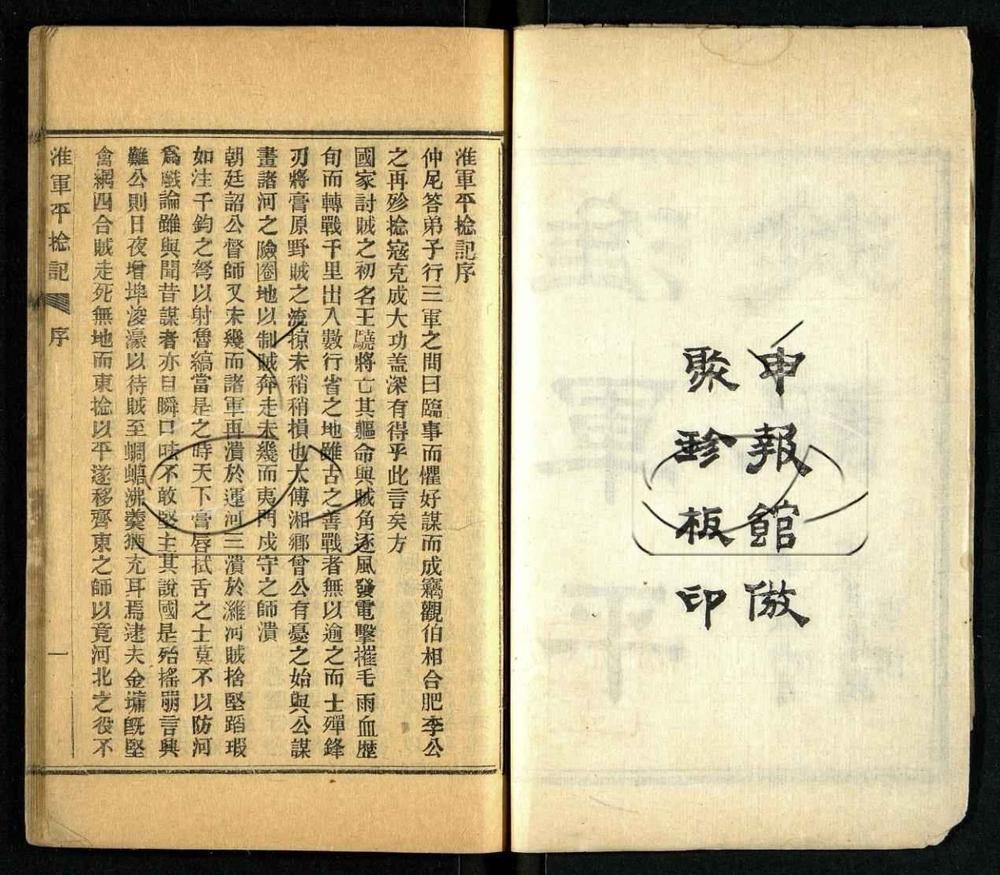 申報館倣
聚珍板印
淮軍平捻記序
仲尼答弟子行三軍之問曰臨事而懼好謀而成竊觀伯相合肥李公
之再殄捻寇克成大功蓋深有得乎此言矣方
國家討賊之初名王驍將亡其軀命與賊角逐風發電擊摧毛雨血歷
旬而轉戰千里出入數行省之地雖古之善戰者無以逾之而士殫鋒
刃將膏原野賊之流掠未稍稍損也太傅湘鄉曾公有憂之始與公謀
畫諸河之險圈地以制賊奔走未幾而夷門戍守之師潰
朝廷詔公督師又未幾而諸軍再潰於運河三潰於濰河賊捨堅蹈瑕
如注千鈞之弩以射魯縞當是之時天下膏唇拭舌之士莫不以防河
爲戲論雖與聞昔謀者亦目瞬口呿不敢堅主其說國是殆搖謗言興
難公則日夜增埤浚濠以待賊至蜩螗沸羹褎充耳焉逮夫金墉既堅
禽網四合賊走死無地而東捻以平遂移齊東之師以竟河北之役不
淮軍平捻記 序 一